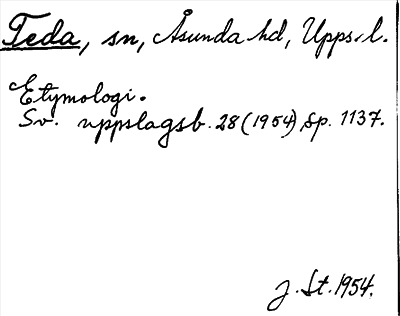 Teda, sn, Åsunda hd, Upps. l.
Etymologi.
Sv. uppslagsb. 28 (1954) sp. 1137.
J. St. 1954.